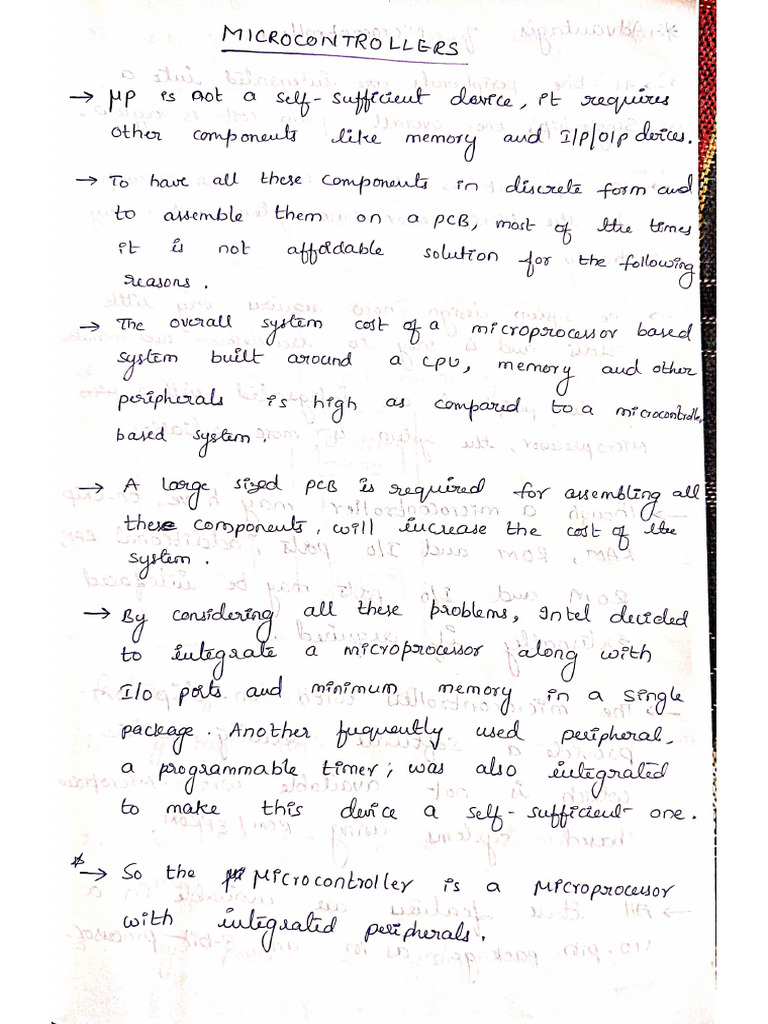 MICROCONTROLLERS
→ μp is not a self-sufficient device, it requires
other components like memory and I/p/o/p devices.
→ To have all these components in discrete form and
to assemble them on a PCB, most of the times
it is not affordable solution for the following
reasons.
→ The overall system cost of a microprocessor based
system built around a CPU, memory and other
peripherals is high as compared to a microcontroller
based system.
→ A large sized PCB is required for assembling all
these components, will increase the cost of the
system.
→ By considering all these problems, Intel decided
to integrate a microprocessor along with
I/o ports and minimum memory in a single
package. Another frequently used peripheral,
a programmable timer; was also integrated
to make this device a self-sufficient one.
* → So the Microcontroller is a Microprocessor
with integrated peripherals.